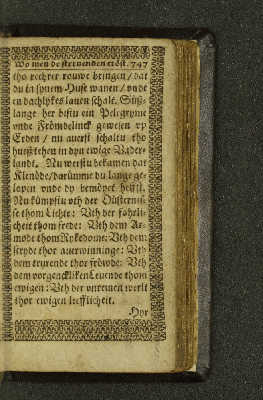 Wo men de steruenden tröst. 747
tho rechter rouwe bringen / dat
du in synem Huse wanen / vnde
en dachlykes lauen schalt. Süß
lange her bistu ein Pelegryme
vnde Frömdelinck gewesen vp
Erden / nu auerst schaltu tho
huß tehen in dyn ewige Vader-
landt. Nu werstu bekamen dat
Klenöde / darümme du lange ge-
lopen vnde dy bemöyet heffst.
Nu kümpstu vth der Düsternis-
se thom Lichte: Vth der fahrli-
cheit thom frede: Vth dem Ar-
mode thom Rykedome: Vth dem
stryde thor auerwinninge: Vth
dem trurende thor fröwde: Vth
dem vorgencklikën Leuende thom
ewigen: Vth der vnreinen werlt
thor ewigen liefflicheit.
Hyr